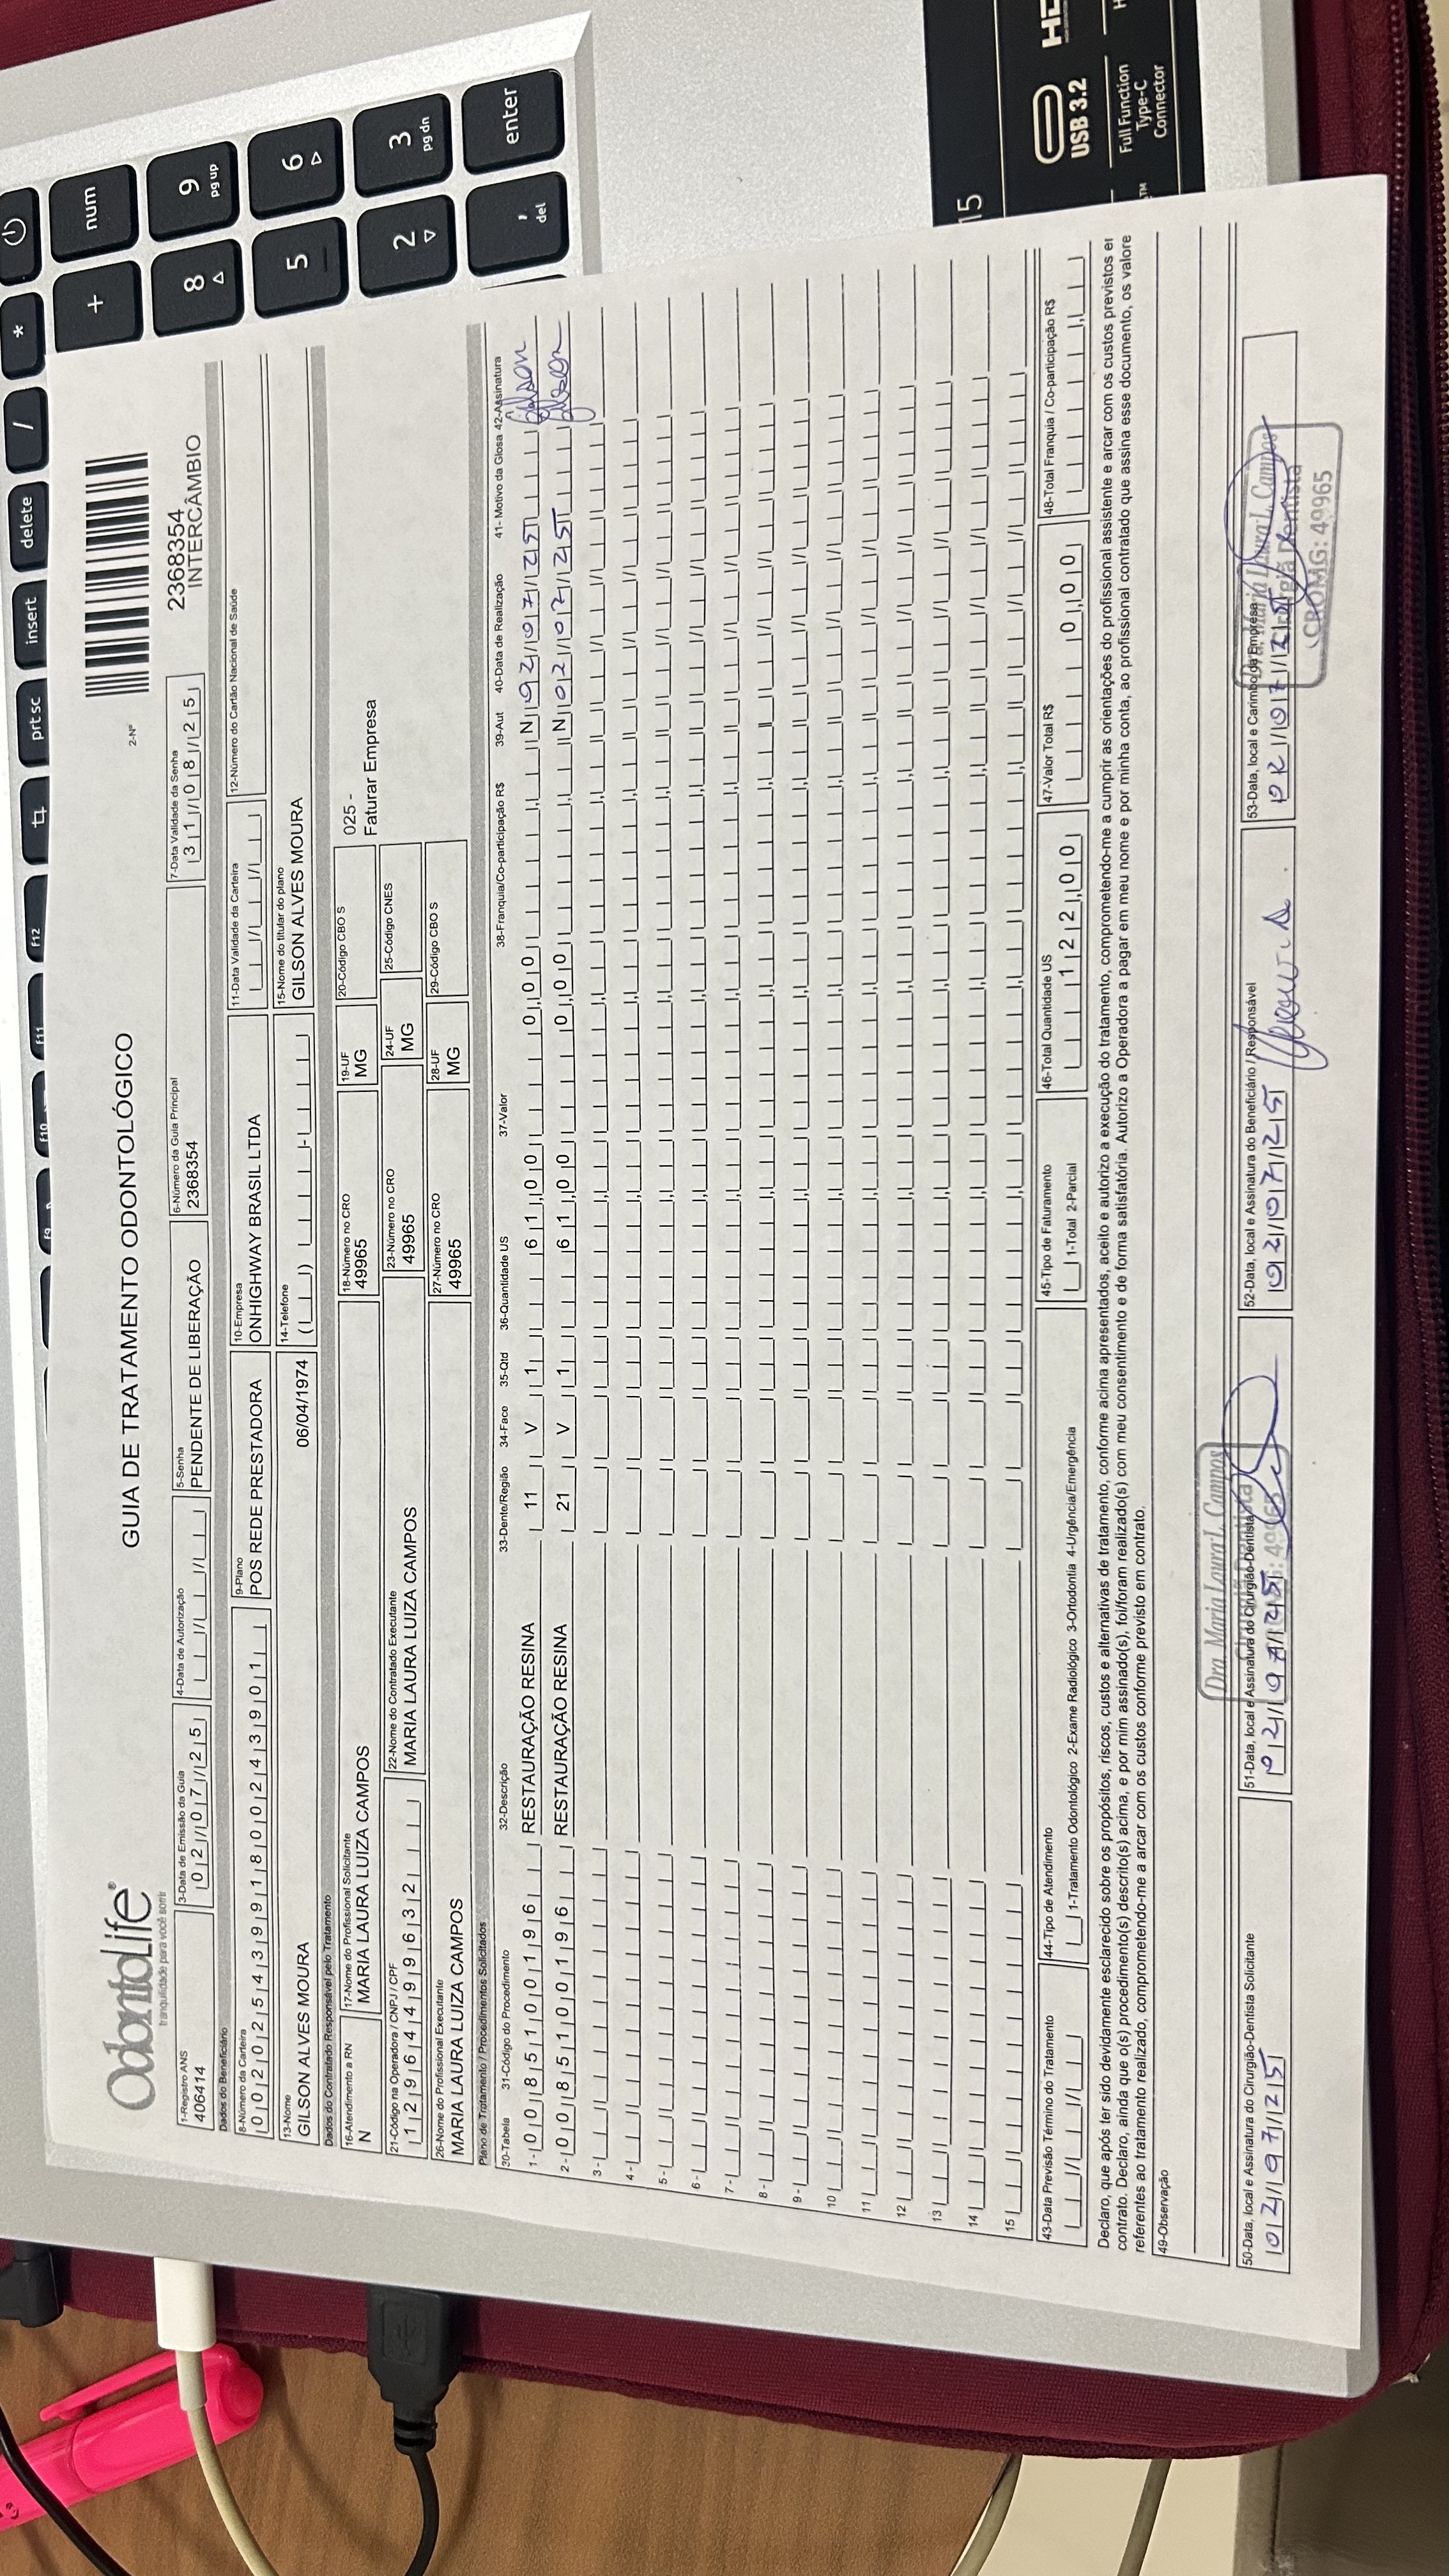 OdontoLife®
tranquilidade para você sorrir
GUIA DE TRATAMENTO ODONTOLÓGICO
2-Nº
2368354
INTERCÂMBIO
1-Registro ANS
406414
3-Data de Emissão da Guia
02/07/25
4-Data de Autorização
5-Senha
PENDENTE DE LIBERAÇÃO
6-Número da Guia Principal
2368354
7-Data Validade da Senha
31/08/25
Dados do Beneficiário
8-Número da Carteira
00202543991800243901
9-Plano
POS REDE PRESTADORA
10-Empresa
ONHIGHWAY BRASIL LTDA
11-Data Validade da Carteira
12-Número do Cartão Nacional de Saúde
13-Nome
GILSON ALVES MOURA
06/04/1974
14-Telefone
15-Nome do titular do plano
GILSON ALVES MOURA
Dados do Contratado Responsável pelo Tratamento
16-Atendimento a RN
N
17-Nome do Profissional Solicitante
MARIA LAURA LUIZA CAMPOS
18-Número no CRO
49965
19-UF
MG
20-Código CBO S
025 -
Faturar Empresa
21-Código na Operadora / CNPJ / CPF
12964499632
22-Nome do Contratado Executante
MARIA LAURA LUIZA CAMPOS
23-Número no CRO
49965
24-UF
MG
25-Código CNES
26-Nome do Profissional Executante
MARIA LAURA LUIZA CAMPOS
27-Número no CRO
49965
28-UF
MG
29-Código CBO S
Plano de Tratamento / Procedimentos Solicitados
30-Tabela 31-Código do Procedimento 32-Descrição 33-Dente/Região 34-Face 35-Qtd 36-Quantidade US 37-Valor 38-Franquia/Co-participação R$ 39-Aut 40-Data de Realização 41- Motivo da Glosa 42-Assinatura
1 - 00 85100196 RESTAURAÇÃO RESINA 11 V 1 61,00 0,00 N 02/07/25 Gilson
2 - 00 85100196 RESTAURAÇÃO RESINA 21 V 1 61,00 0,00 N 02/07/25 Gilson
3 -
4 -
5 -
6 -
7 -
8 -
9 -
10
11
12
13
14
15
43-Data Previsão Término do Tratamento
44-Tipo de Atendimento
1-Tratamento Odontológico 2-Exame Radiológico 3-Ortodontia 4-Urgência/Emergência
45-Tipo de Faturamento
1-Total 2-Parcial
46-Total Quantidade US
122,00
47-Valor Total R$
0,00
48-Total Franquia / Co-participação R$
Declaro, que após ter sido devidamente esclarecido sobre os propósitos, riscos, custos e alternativas de tratamento, conforme acima apresentados, aceito e autorizo a execução do tratamento, comprometendo-me a cumprir as orientações do profissional assistente e arcar com os custos previstos em
contrato. Declaro, ainda que o(s) procedimento(s) descrito(s) acima, e por mim assinado(s), foi/foram realizado(s) com meu consentimento e de forma satisfatória. Autorizo a Operadora a pagar em meu nome e por minha conta, ao profissional contratado que assina esse documento, os valore
referentes ao tratamento realizado, comprometendo-me a arcar com os custos conforme previsto em contrato.
49-Observação
50-Data, local e Assinatura do Cirurgião-Dentista Solicitante
02/07/25
51-Data, local e Assinatura do Cirurgião-Dentista
02/07/25
Dra. Maria Laura L. Campos
52-Data, local e Assinatura do Beneficiário / Responsável
02/07/25
53-Data, local e Carimbo da Empresa
02/07/25
Dra. Maria Laura L. Campos
Cirurgiã Dentista
CROMG: 49965
num
+
*
/
delete
insert
prt sc
F12
F11
F10
F9
9
pg up
8
6
5
3
pg dn
2
enter
,
del
15
USB 3.2
Full Function
Type-C
Connector